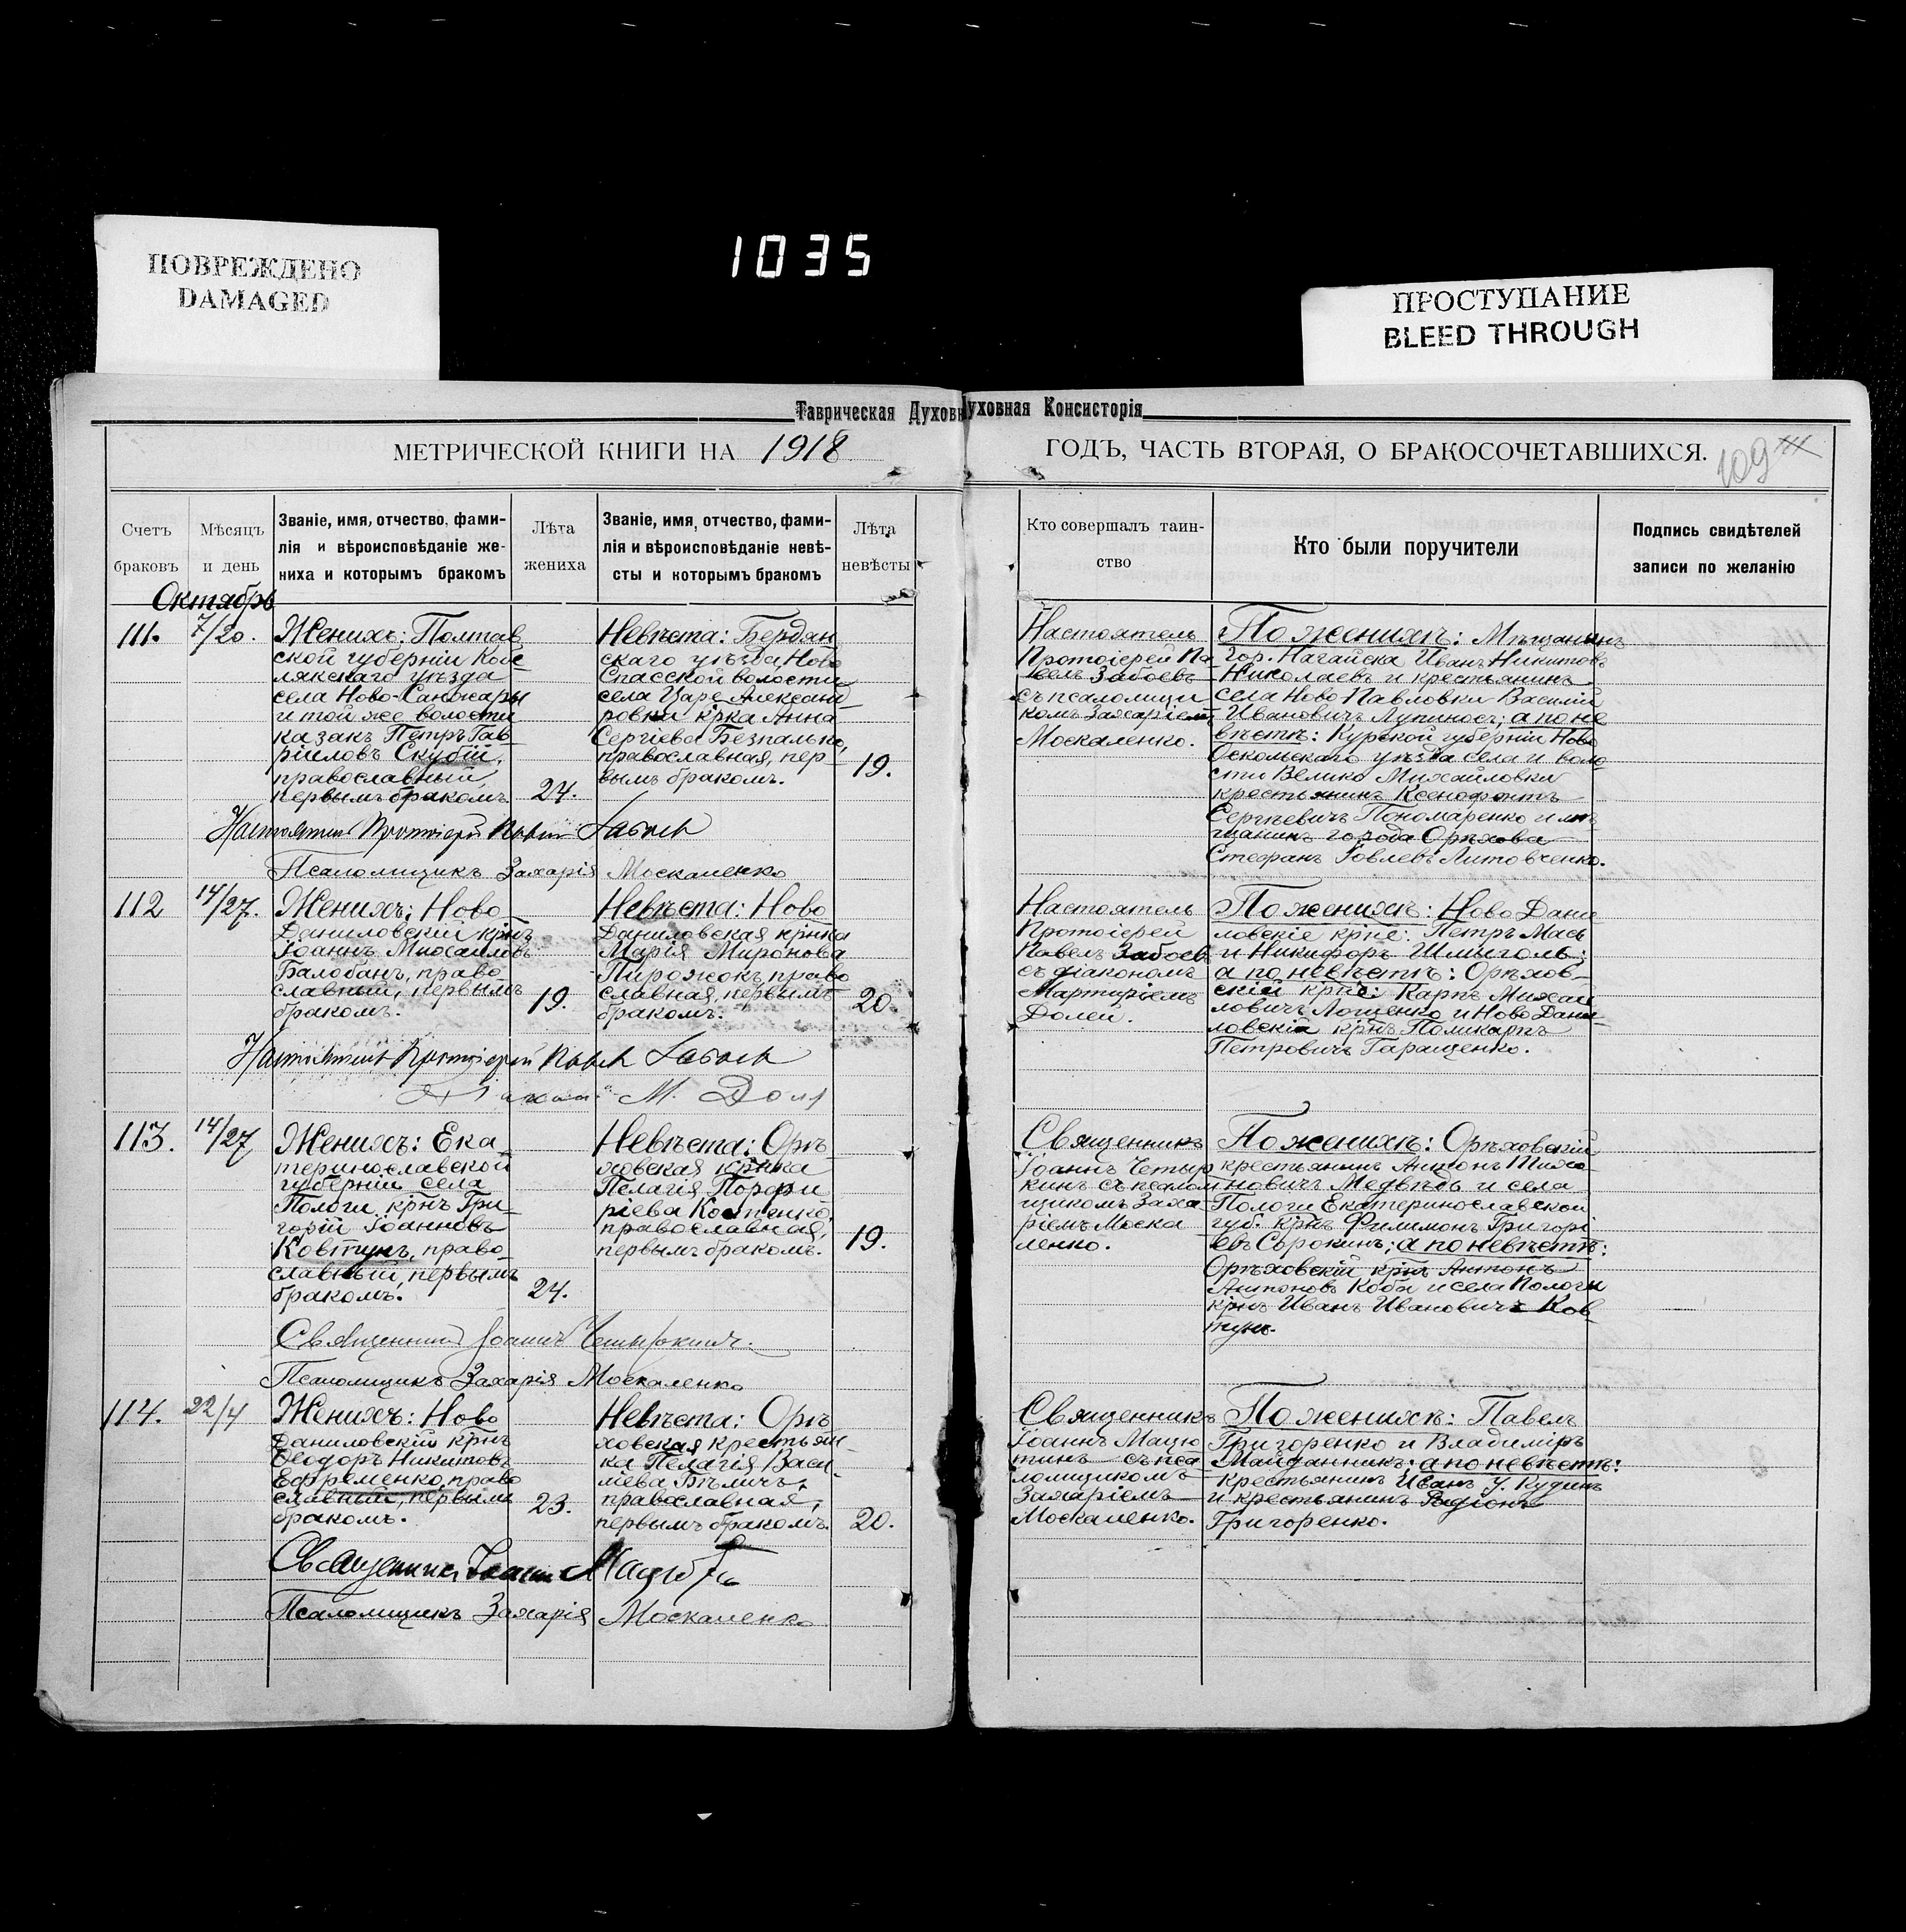 1035
ПОВРЕЖДЕНО
DAMAGED
ПРОСТУПАНИЕ
BLEED THROUGH
Таврическая Духовн
уховная Консисторія
МЕТРИЧЕСКОЙ КНИГИ НА 1918
ГОДЪ, ЧАСТЬ ВТОРАЯ, О БРАКОСОЧЕТАВШИХСЯ.
109
Счетъ
браковъ
Мѣсяцъ
и день
Званіе, имя, отчество, фами-
лія и вѣроисповѣданіе же-
ниха и которымъ бракомъ
Лѣта
жениха
Званіе, имя, отчество, фами-
лія и вѣроисповѣданіе невѣ-
сты и которымъ бракомъ
Лѣта
невѣсты
Кто совершалъ таин-
ство
Кто были поручители
Подпись свидѣтелей
записи по желанію
Октябрь
111.
7/20.
Женихъ: Полтав
ской губерніи Кобе
лякскаго уѣзда
села Ново-Санжары
и той же волости
казакъ Петръ Гав
ріиловъ Скубій,
православный,
первымъ бракомъ.
24.
Невѣста: Бердян
скаго уѣзда, Ново
Спасской волости
села Царе Александ
ровки кр̃ка Анна
Сергіева Безпалько,
православная, пер
вымъ бракомъ.
19.
Настоятель
Протоіерей Па
велъ Забоевъ
съ псаломщи
комъ Захаріемъ
Москаленко.
По женихѣ: Мѣщанинъ
гор. Нагайска Иванъ Никитовъ
Николаевъ и крестьянинъ
села Ново Павловки Василій
Ивановичъ Лупиносъ; а по не
вѣстѣ: Курской губерніи Ново
Оскольскаго уѣзда села и воло
сти Велико Михайловки
крестьянинъ Ксенофонтъ
Сергѣевичъ Пономаренко и мѣ
щанинъ города Орѣхова
Стефанъ Іовлевъ Литовченко.
Настоятель Протоіерей Павелъ Забоевъ
Псаломщикъ Захарія Москаленко
112
14/27.
Женихъ: Ново
Даниловскій кр̃нъ
Іоаннъ Михаиловъ
Балобанъ, право
славный, первымъ
бракомъ.
19.
Невѣста: Ново
Даниловская кр̃нка
Марія Миронова
Пирожокъ, право
славная, первымъ
бракомъ.
20.
Настоятель
Протоіерей
Павелъ Забоевъ
съ діакономъ
Мартиріемъ
Долей.
По женихѣ: Ново Дани
ловскіе кр̃не: Петръ Мась
и Никифоръ Шмыголь;
а по невѣстѣ: Орѣхов-
скій кр̃не: Карпъ Михай
ловичъ Лощенко и Ново Дани-
ловскій кр̃нъ Поликарпъ
Петровичъ Таращенко.
Настоятель Протоіерей Павелъ Забоевъ
М. Доля
113.
14/27
Женихъ: Ека
теринославской
губерніи села
Пологи кр̃нъ Гри-
горій Іоанновъ
Ковтунъ, право-
славный, первымъ
бракомъ.
24.
Невѣста: Орѣ
ховская кр̃нка
Пелагія Порфи
ріева Костенко,
православная,
первымъ бракомъ.
19.
Священникъ
Іоаннъ Четыр
кинъ съ псалом
щикомъ Заха
ріемъ Моска
ленко.
По женихѣ: Орѣховскій
крестьянинъ Антонъ Тихо-
новичъ Медвѣдь и села
Пологи Екатеринославской
губ. кр̃нъ Филимонъ Григорі
евъ Сорокинъ; а по невѣстѣ:
Орѣховскій кр̃нъ Антонъ
Антоновъ Коба и села Пологи
кр̃нъ Иванъ Ивановичъ Ков
тунъ.
Священникъ Іоаннъ Четыркинъ.
Псаломщикъ Захарія Москаленко
114.
22/4
Женихъ: Ново
Даниловскій кр̃нъ
Ѳеодоръ Никитовъ
Ефременко, право
славный, первымъ
бракомъ.
23.
Невѣста: Орѣ
ховская крестьян-
ка Пелагія Васи-
ліева Бѣличъ,
православная,
первымъ бракомъ.
20.
Священникъ
Іоаннъ Мацю
тинъ съ пса
ломщикомъ
Захаріемъ
Москаленко.
По женихѣ: Павелъ
Григоренко и Владиміръ
Майданникъ; а по невѣстѣ:
крестьянинъ Иванъ У. Кудинъ
и крестьянинъ Родіонъ
Григоренко.
Священникъ Іоаннъ Мацютинъ
Псаломщикъ Захарія Москаленко